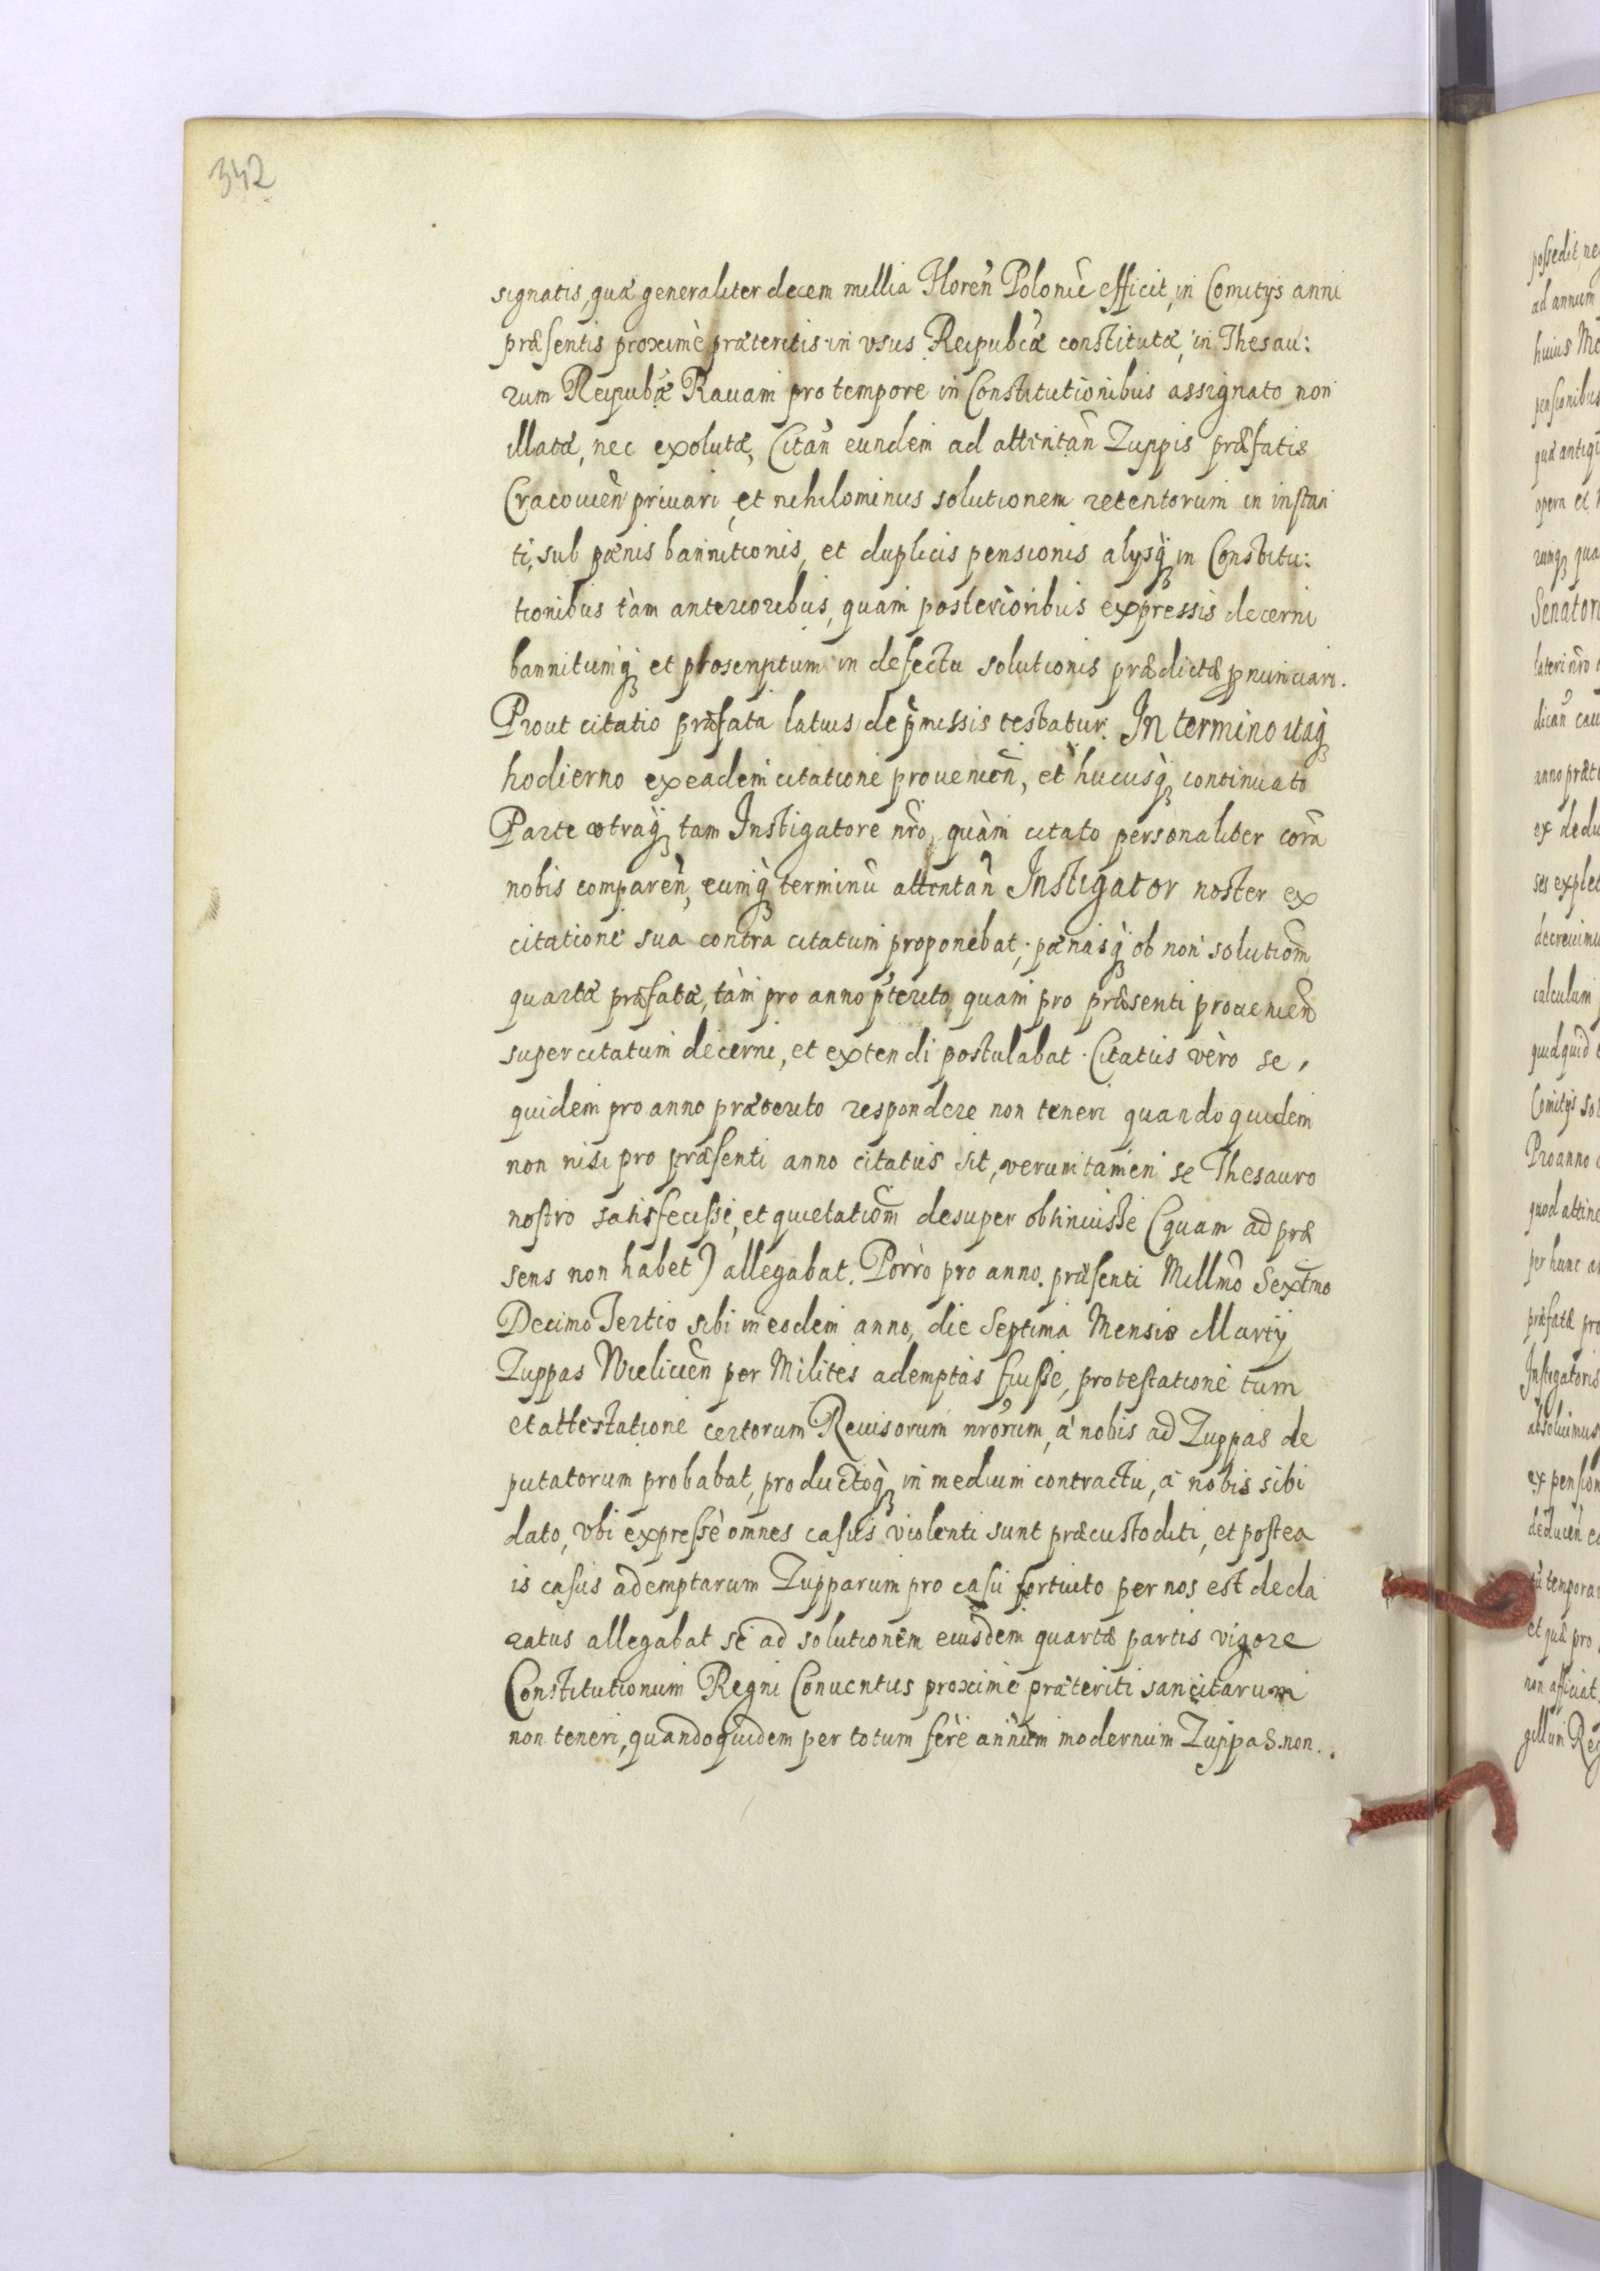 342
signatis, quæ generaliter decem millia Floreñ Polonic̃ efficit, in Comitijs anni
præsentis proximè præteritis in vsus Reipubcæ constitutæ, in Thesau:
rum Reipubæ Rauam pro tempore in Constitutionibus assignato non
illatæ, nec exolutæ, Citañ eundem ad attentañ Zuppis præfatis
Cracouieñ priuari, et nihilominus solutionem retentorum in instan
ti, sub pœnis bannitionis, et duplicis pensionis alysq́ in Constitu:
tionibus tàm anterioribus, quam posterioribus expressis decerni
bannitumq́ et proscriptum in defectu solutionis prædictæ pnunciari.
Prout citatio præfata latius de p̃missis testatur. In termino itaq́
hodierno ex eadem citatione prouenieñ, et hucusq́ continuato
Parte vtraq́ tam Instigatore nr̃o, quàm citato personaliter corã
nobis compareñ, eumq́ terminũ attentañ Instigator noster ex
citatione sua contra citatum proponebat, pœnasq́ ob non solutiom̃
quartæ præfatæ, tàm pro anno p̃terito, quam pro præsenti prouenieñ
super citatum decerni, et extendi postulabat. Citatus vèro se,
quidem pro anno præterito respondere non teneri quando quidem
non nisi pro præsenti anno citatus sit, verumtamen se Thesauro
nostro satisfecisse, et quietatiom̃ desuper obtinuisse (quam ad præ
sens non habet) allegabat. Porrò pro anno præsenti Millmõ Sextm̃o
Decimo Tertio sibi in eodem anno, die Septima Mensis Martij
Zuppas Wieliceñ per Milites ademptas fuisse, protestatione tum
et attestatione certorum Reuisorum nrõrum, à nobis ad Zuppas de
putatorum probabat, productoq́ in medium contractu, à nobis sibi
dato, vbi expressè omnes casus violenti sunt præcustoditi, et postea
is casus ademptarum Zupparum pro casu fortuito per nos est decla
ratus allegabat se ad solutionem eiusdem quartæ partis vigore
Constitutionum Regni Conuentus proximè præteriti sancitarum
non teneri, quandoquidem per totum ferè annum modernum Zuppas non
possedit
ad annum
pensionibus
Senatori
Pro anno
Instigatoris
absoluimus